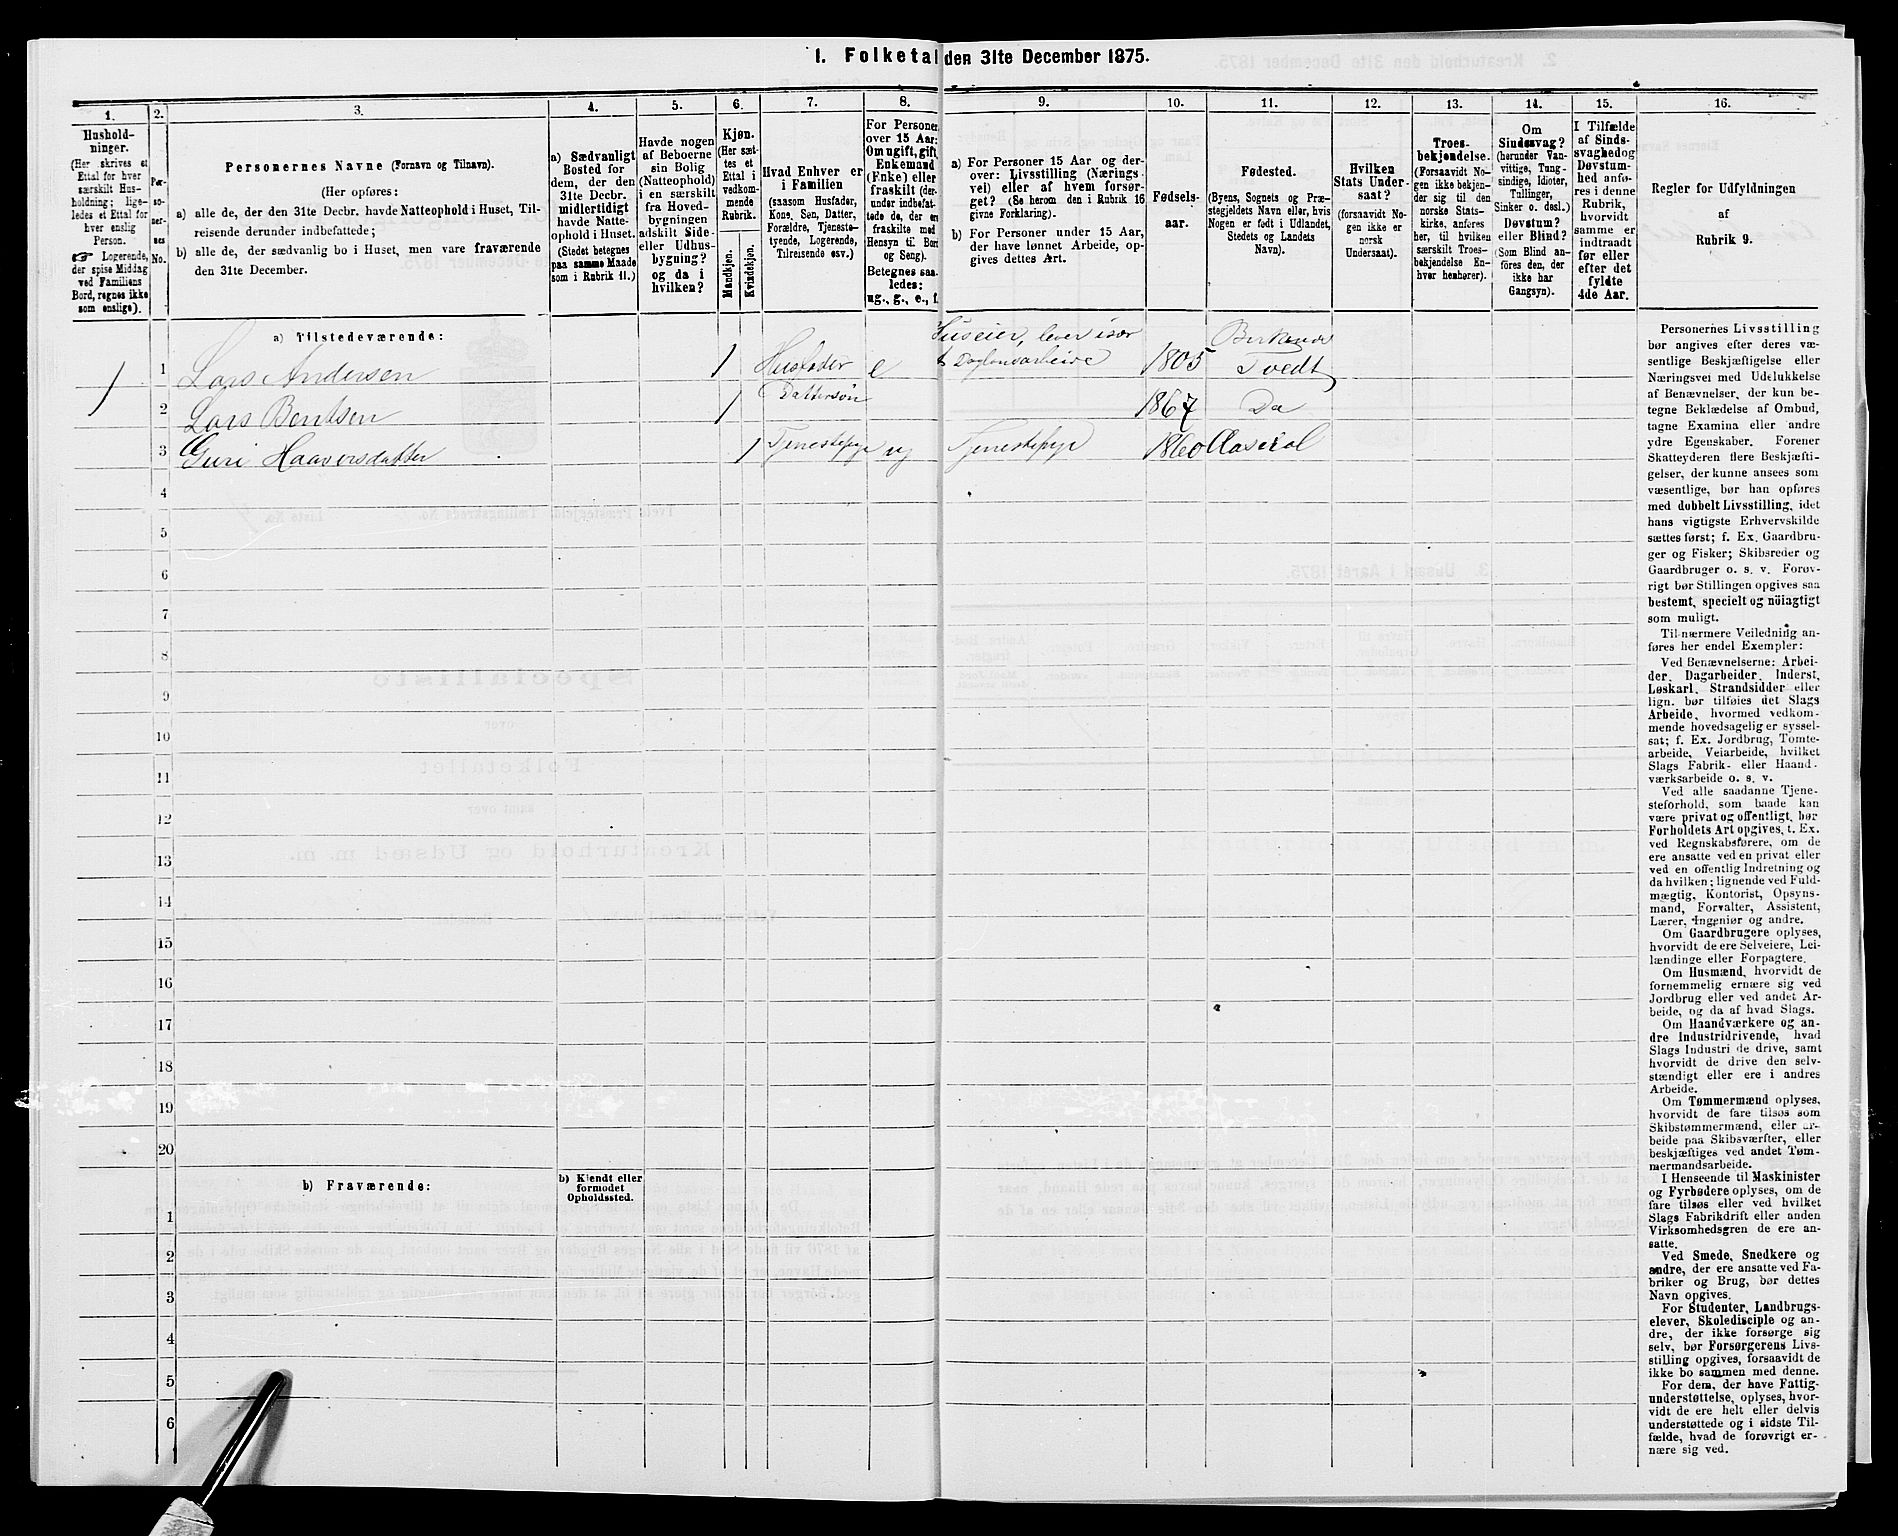 1. Folketal den 31te December 1875.
1.
2.
3.
4.
5.
6.
7.
8.
9.
10.
11.
12.
13.
14.
15.
16.
Hushold-
ninger.
(Her skrives et
Ettal for hver
særskilt Hus-
holdning; lige-
ledes et Ettal for
hver enslig
Person.
☞ Logerende,
der spise Middag
ved Familiens
Bord, regnes ikke
som enslige).
Per-
so-
ner-
nes
No.
Personernes Navne (Fornavn og Tilnavn).
(Her opføres:
a) alle de, der den 31te Decbr. havde Natteophold i Huset, Til-
reisende derunder indbefattede;
b) alle de, der sædvanlig bo i Huset, men vare fraværende
den 31te December.
a) Sædvanligt
Bosted for
dem, der den
31te Decbr.
midlertidigt
havde Natte-
ophold i Huset.
(Stedet betegnes
paa samme Maade
som i Rubrik 11.)
Havde nogen
af Beboerne
sin Bolig
(Natteophold)
i en særskilt
fra Hoved-
bygningen
adskilt Side-
eller Udhus-
bygning?
og da i
hvilken?
Kjøn.
(Her sæt-
tes et
Ettal i
vedkom-
mende
Rubrik.
Mandkjøn.
Kvindekjøn.
Hvad Enhver er
i Familien
(saasom Husfader,
Kone, Søn, Datter,
Forældre, Tjeneste-
tyende, Logerende,
Tilreisende osv.)
For Personer
over 15 Aar:
Om ugift, gift,
Enkemand
(Enke) eller
fraskilt (der-
under indbefat-
tede de, der ere
fraskilte med
Hensyn til Bord
og Seng).
Betegnes saa-
ledes:
ug., g., e., f.
a) For Personer 15 Aar og der-
over: Livsstilling (Nærings-
vei) eller af hvem forsør-
get? (Se herom den i Rubrik 16
givne Forklaring).
b) For Personer under 15 Aar,
der have lønnet Arbeide, op-
gives dettes Art.
Fødsels-
aar.
Fødested.
(Byens, Sognets og Præ-
stegjeldets Navn eller, hvis
Nogen er født i Udlandet,
Stedets og Landets
Navn).
Hvilken
Stats Under-
saat?
(forsaavidt No-
gen ikke er
norsk
Undersaat).
Troes-
bekjendelse.
(Forsaavidt No-
gen ikke bekjen-
der sig til den
norske Stats-
kirke, anføres
her, til hvilken
særskilt Troes-
bekjendelse En-
hver henhører).
Om
Sindssvag?
(herunder Van-
vittige, Tung-
sindige, Idioter,
Tullinger,
Sinker o. desl.)
Døvstum?
eller Blind?
(Som Blind an-
føres den, der
ikke har
Gangsyn).
I Tilfælde
af Sinds-
svaghed og
Døvstum-
hed anfø-
res i denne
Rubrik,
hvorvidt
samme er
indtraadt
før eller
efter det
fyldte
4de Aar.
Regler for Udfyldningen
af
Rubrik 9.
a) Tilstedeværende:
1 1 Lars Andersen 1 Husfader e Huseier, lever især t Daglønsarbeide 1805 Tvedt
2 Lars Bentsen 1 Dattersøn 1867 Do
3 Guri Haaversdatter 1 Tjenestepige ug Tjenestepige 1860
4
5
6
7
8
9
10
11
12
13
14
15
16
17
18
19
20
b) Fraværende:
b) Kjendt eller
formodet
Opholdssted.
1
2
3
4
5
6
Personernes Livsstilling
bør angives efter deres væ-
sentlige Beskjæftigelse eller
Næringsvei med Udelukkelse
af Benævnelser, der kun be-
tegne Beklædelse af Ombud,
tagne Examina eller andre
ydre Egenskaber. Forener
Skatteyderen flere Beskjæfti-
gelser, der kunne ansees som
væsentlige, bør han opføres
med dobbelt Livsstilling, idet
hans vigtigste Erhvervskilde
sættes først; f. Ex. Gaardbru-
ger og Fisker; Skibsreder og
Gaardbruger o. s. v. Forøv-
rigt bør Stillingen opgives saa
bestemt, specielt og nöiagtigt
som muligt.
Til nærmere Veiledning an-
føres her endel Exempler:
Ved Benævnelserne: Arbei-
der, Dagarbeider, Inderst,
Løskarl, Strandsidder eller
lign. bør tilføies det Slags
Arbeide, hvormed vedkom-
mende hovedsagelig er syssel-
sat; f. Ex. Jordbrug, Tomte-
arbeide, Veiarbeide, hvilket
Slags Fabrik- eller Haand-
værksarbeide o. s. v.
Ved alle saadanne Tjene-
steforhold, som baade kan
være privat og offentligt, bør
Forholdets Art opgives, t. Ex.
ved Regnskabsførere, om de
ere ansatte ved en privat eller
ved en offentlig Indretning og
da hvilken; lignende ved Fuld-
mægtig, Kontorist, Opsyns-
mand, Forvalter, Assistent,
Lærer, Ingeniør og andre.
Om Gaardbrugere oplyses,
hvorvidt de ere Selveiere, Lei-
lændinge eller Forpagtere.
Om Husmænd, hvorvidt de
fornemmelig ernære sig ved
Jordbrug eller ved andet Ar-
beide, og da af hvad Slags.
Om Haandværkere og an-
dre Industridrivende, hvad
Slags Industri de drive, samt
hvorvidt de drive den selv-
stændigt eller ere i andres
Arbeide.
Om Tømmermænd oplyses,
hvorvidt de fare tilsøs som
Skibstømmermænd, eller ar-
beide paa Skibsværfter, eller
beskjæftiges ved andet Tøm-
mermandsarbeide.
I Henseende til Maskinister
og Fyrbødere oplyses, om de
fare tilsøs eller ved hvilket
Slags Fabrikdrift eller anden
Virksomhedsgren de ere an-
satte.
Ved Smede, Snedkere og
andre, der ere ansatte ved Fa-
briker og Brug, bør dettes
Navn opgives.
For Studenter, Landbrugs-
elever, Skoledisciple og an-
dre, der ikke forsørge sig
selv, bør Forsørgerens Livs-
stilling opgives, forsaavidt de
ikke bo sammen med denne.
For dem, der have Fattig-
understøttelse, oplyses, hvor-
vidt de ere helt eller delvis
understøttede og i sidste Til-
fælde, hvad de forøvrigt er-
nære sig ved.